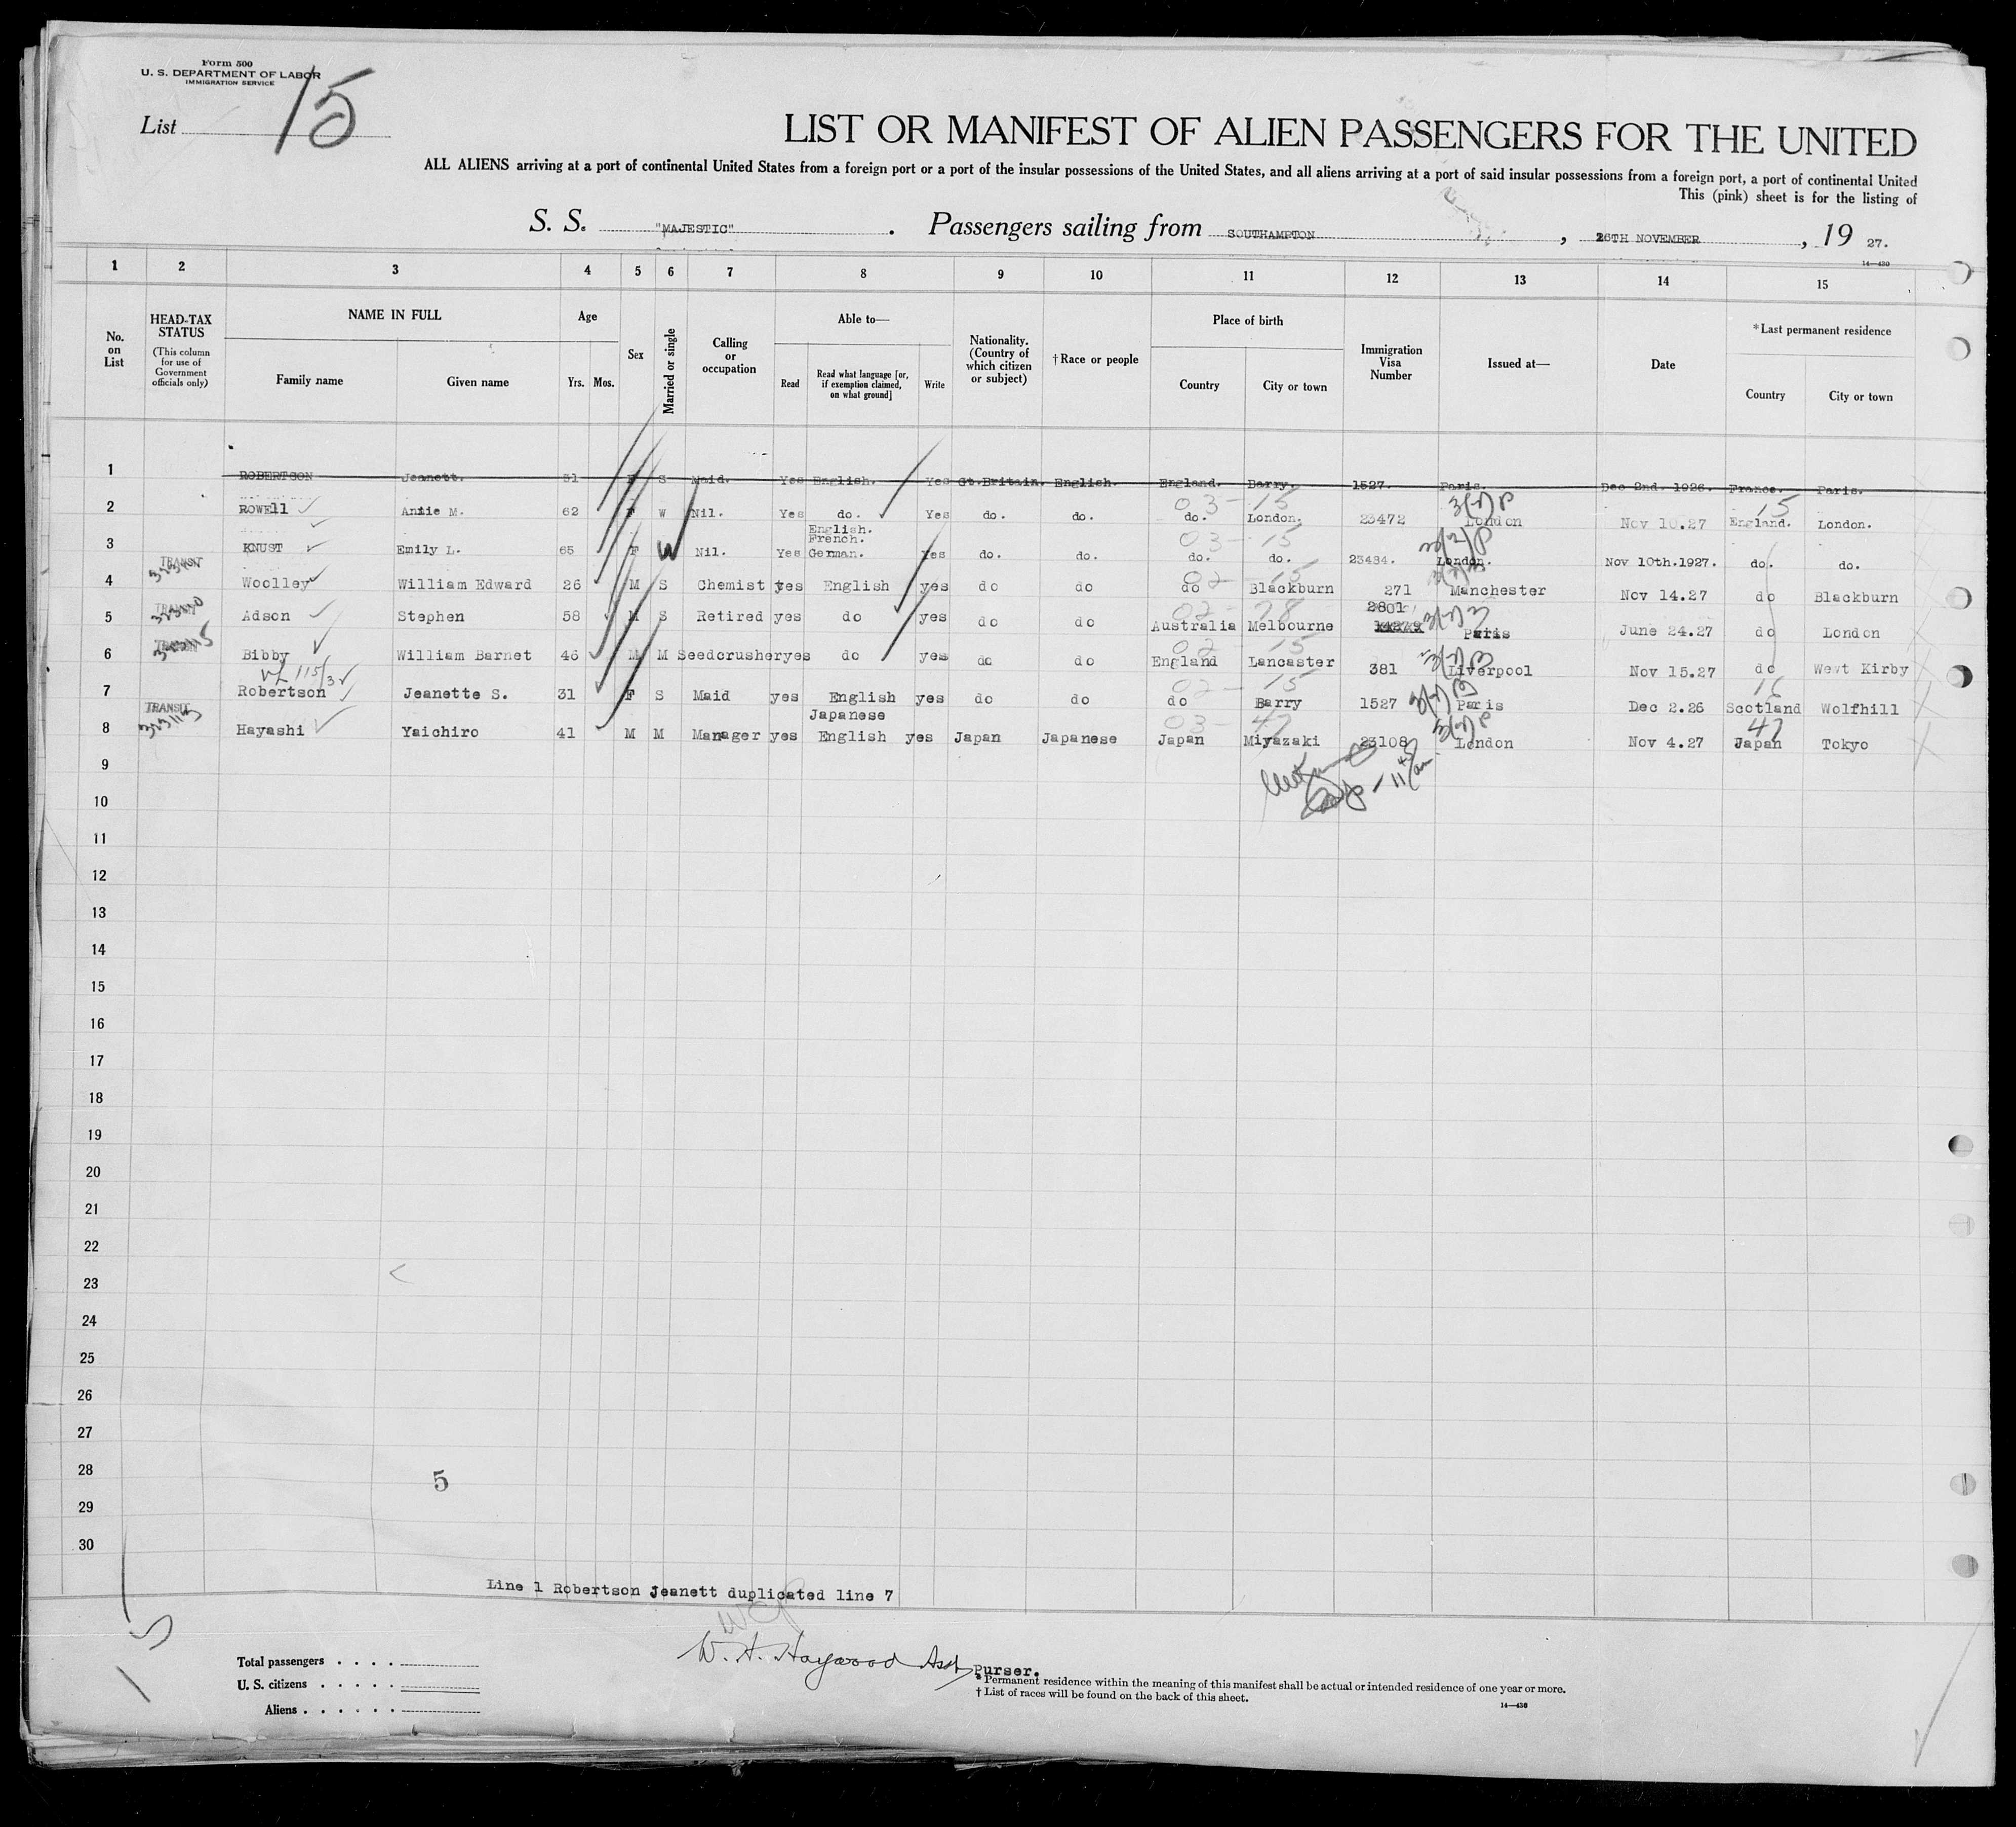 Form 500
U. S. DEPARTMENT OF LABOR
IMMIGRATION SERVICE
List 15
LIST OR MANIFEST OF ALIEN PASSENGERS FOR THE UNITED
ALL ALIENS arriving at a port of continental United States from a foreign port or a port of the insular possessions of the United States, and all aliens arriving at a port of said insular possessions from a foreign port, a port of continental United
This (pink) sheet is for the listing of
S. S. "MAJESTIC". Passengers sailing from SOUTHAMPTON, 26TH NOVEMBER, 19 27.
14—430
1 2 3 4 5 6 7 8 9 10 11 12 13 14 15
No. on List
HEAD-TAX STATUS (This column for use of Government officials only)
NAME IN FULL Family name Given name
Age Yrs. Mos.
Sex
Married or single
Calling or occupation
Able to— Read Read what language [or, if exemption claimed, on what ground] Write
Nationality. (Country of which citizen or subject)
†Race or people
Place of birth Country City or town
Immigration Visa Number
Issued at—
Date
*Last permanent residence Country City or town
1 ROBERTSON Jeanett. 31 F S Maid. Yes English. Yes Gt.Britain. English. England. Barry. 1527. Paris. Dec 2nd. 1926. France. Paris.
03-15 3(2)P 15
2 ROWEll Annie M. 62 F W Nil. Yes do. Yes do. do. do. London. 23472 London Nov 10.27 England. London.
English.
French.
03-15 3(2)P
3 KNUST Emily L. 65 F W Nil. Yes German. Yes do. do. do. do. 23484. London. Nov 10th.1927. do. do.
TRANSIT
02-15
4 Woolley William Edward 26 M S Chemist yes English yes do do do Blackburn 271 Manchester Nov 14.27 do Blackburn
TRANSIT
02-28 2801
5 Adson Stephen 58 M S Retired yes do yes do do Australia Melbourne Paris June 24.27 do London
TRANSIT
02-15
6 Bibby William Barnet 46 M M Seedcrusher yes do yes do do England Lancaster 381 Liverpool Nov 15.27 do Wewt Kirby
02-15 16
7 Robertson Jeanette S. 31 F S Maid yes English yes do do do Barry 1527 Paris Dec 2.26 Scotland Wolfhill
TRANSIT
Japanese
03-47 3(2)P 47
8 Hayashi Yaichiro 41 M M Manager yes English yes Japan Japanese Japan Miyazaki 23108 London Nov 4.27 Japan Tokyo
9
10
11
12
13
14
15
16
17
18
19
20
21
22
23
24
25
26
27
28
5
29
30
Line 1 Robertson Jeanett duplicated line 7
W. H. Haywood Asst Purser.
Total passengers . . . .
U. S. citizens . . . . .
Aliens . . . . . .
* Permanent residence within the meaning of this manifest shall be actual or intended residence of one year or more.
† List of races will be found on the back of this sheet.
14—430